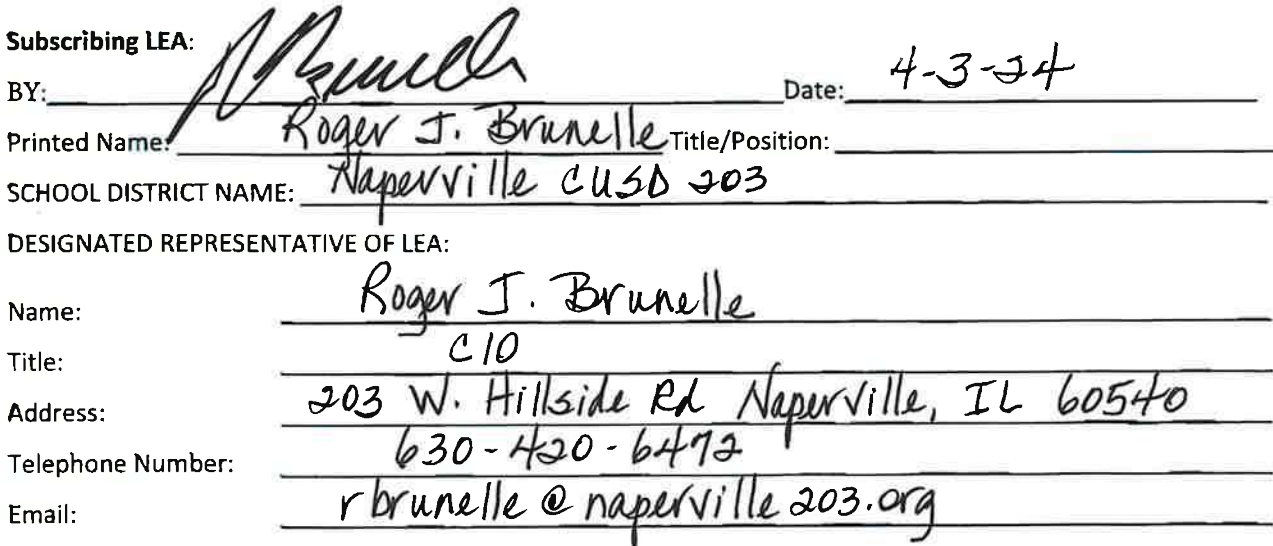 Subscribing LEA:
BY: R Brunelle Date: 4-3-24
Printed Name: Roger J. Brunelle Title/Position:
SCHOOL DISTRICT NAME: Naperville CUSD 203
DESIGNATED REPRESENTATIVE OF LEA:
Name: Roger J. Brunelle
Title: CIO
Address: 203 W. Hillside Rd Naperville, IL 60540
Telephone Number: 630-420-6472
Email: rbrunelle@naperville203.org